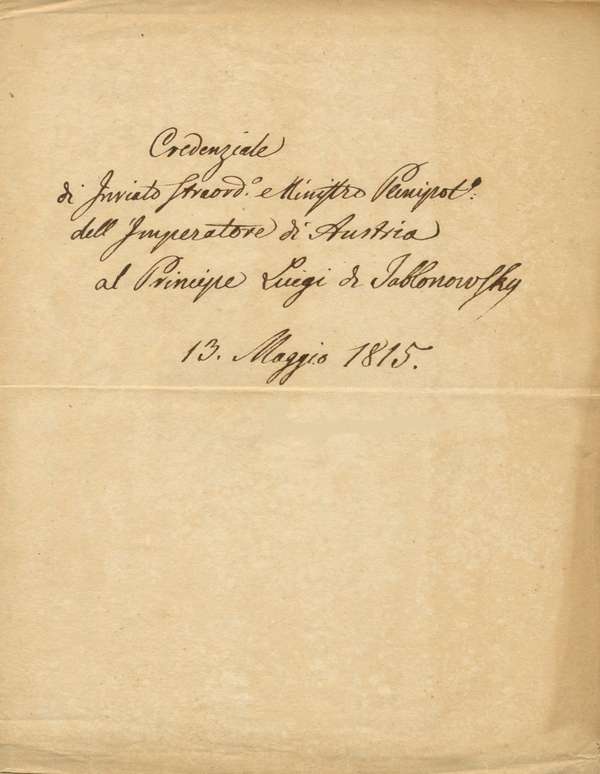 Credenziale
di Inviato Straord.o e Ministro Plenipot.o:
dell'Imperatore di Austria
al Principe Luigi di Jablonowsky
13. Maggio 1815.